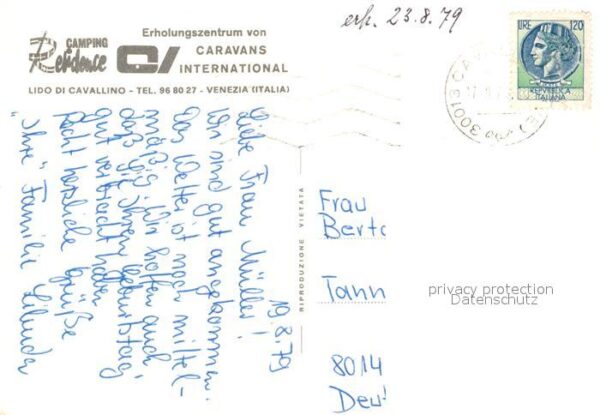 CAMPING
Residence
Erholungszentrum von
CI CARAVANS
INTERNATIONAL
LIDO DI CAVALLINO - TEL. 96 80 27 - VENEZIA (ITALIA)
erh. 23.8.79
LIRE 120
REPVBBLICA
ITALIANA
30013
19.8.79
Liebe Frau Müller!
Wir sind gut angekommen.
Das Wetter ist noch mittel-
mäßig. Wir hoffen auch
daß Sie Ihren Geburtstag
gut verbracht haben.
Recht herzliche Grüße
"Ihre" Familie
RIPRODUZIONE VIETATA
Frau
Berta
Tann
8014
Deu
privacy protection
Datenschutz